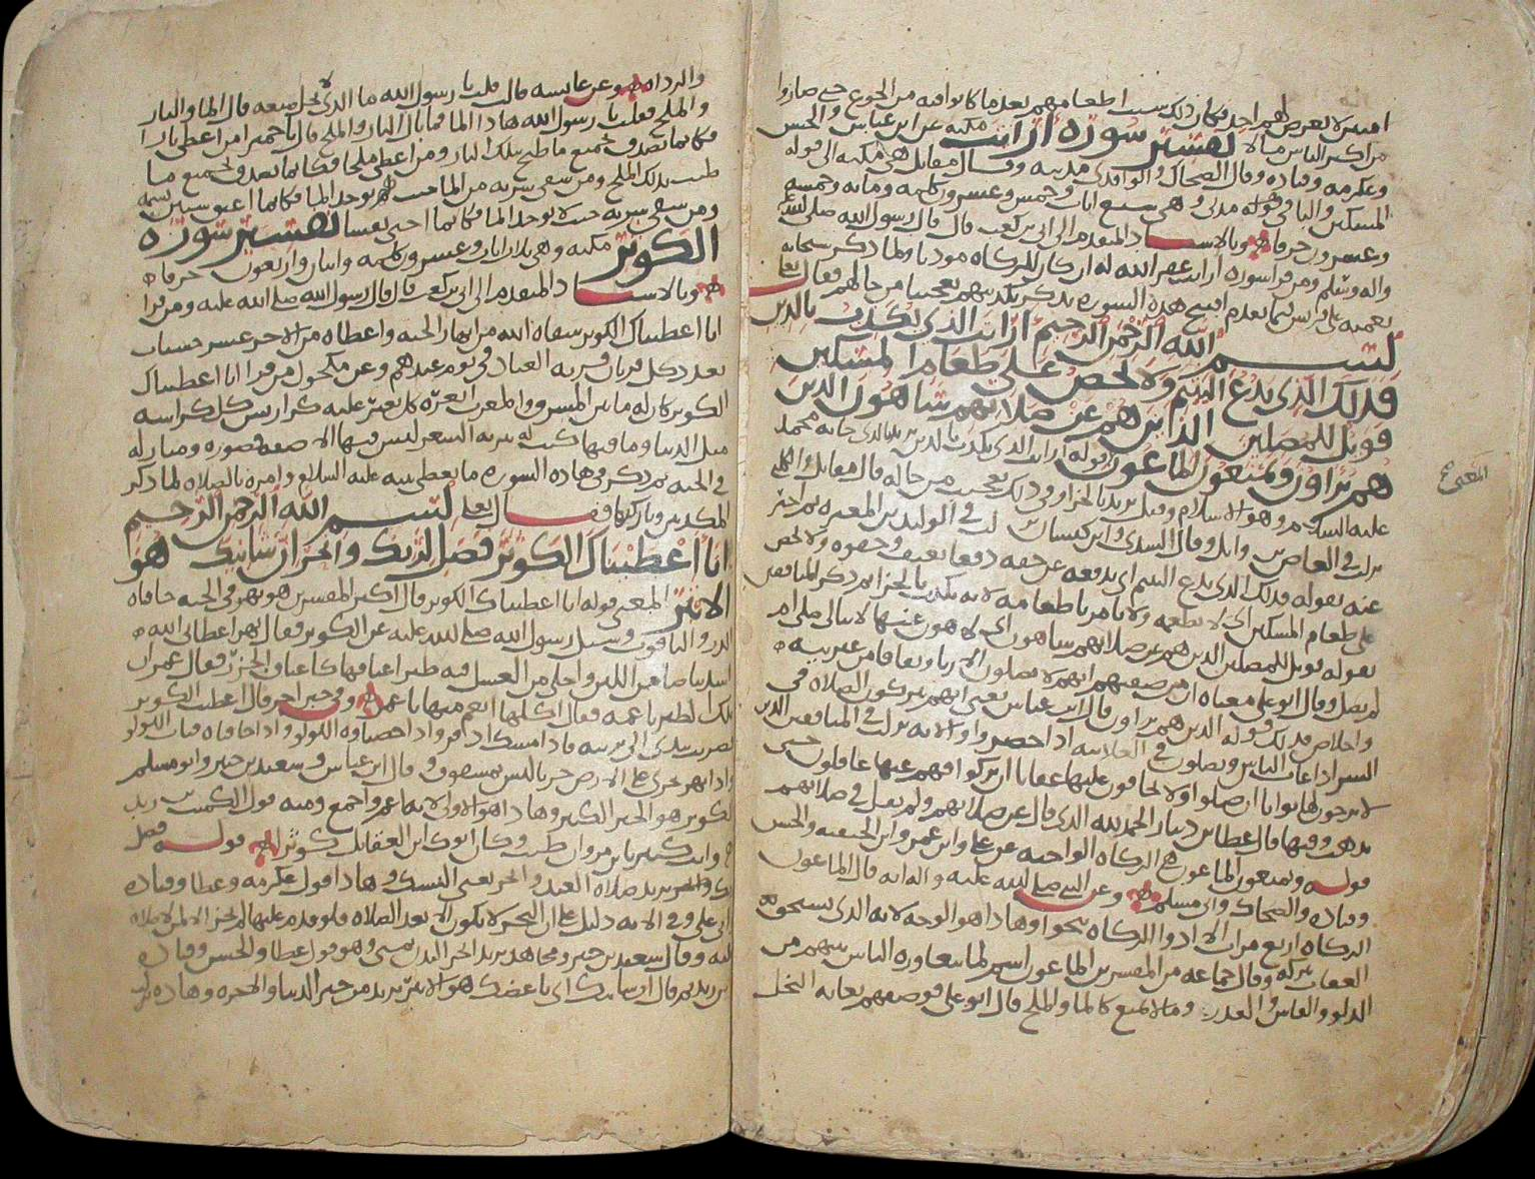 امنين لا يعرض لهم احد فكان ذلك سبب اطعامهم بعد ما كانوا فيه من الجوع حتى صاروا
من اكثر الناس مالا تفسير سورة ارايت مكية عن ابن عباس والحسن
وعكرمه وقتاده وقال الضحاك والواقدي مدنيه وقال مقاتل هي مكيه الى قوله
المسكين والباقي قوله مدني وهي سبع ايات وخمس وعشرون كلمه ومايه وخمسه
وعشرون حرفا وبالاسناد المتقدم الى ابي بن كعب قال قال رسول الله صلى الله عليه
واله وسلم ومن قرا سوره ارايت غفر الله له ان كان للزكاه موديا ولما ذكر سبحانه
نعمته على قريش فيما تقدم افتتح هذه السوره بذكر تكذيبهم تعجيبا من حالهم فقال تعالى
بسم الله الرحمن الرحيم ارايت الذي يكذب بالدين
فذلك الذي يدع اليتيم ولا يحض على طعام المسكين
فويل للمصلين الذين هم عن صلاتهم ساهون الذين
هم يراون ويمنعون الماعون قوله ارايت الذي يكذب بالدين يريد الذي جا به محمد
المعنى
عليه السلام وهو الاسلام وقيل يريد بالجزا وفي ذلك تعجيب من حاله قال مقاتل والكلبي
نزلت في العاص بن وايل وقال السدي وابن كيسان نزلت في الوليد بن المغيره ثم اخبر
عنه بقوله فذلك الذي يدع اليتيم اي يدفعه عن حقه دفعا بعنف وجفوه ولا يحض
على طعام المسكين اي لا يطعمه ولا يامر باطعامه لانه يكذب بالجزا ثم ذكر المنافقين
بقوله فويل للمصلين الذين هم عن صلاتهم ساهون اي لاهون عنها لا يبالي صلى ام
لم يصل وقال ابو علي معناه ان من صفتهم انهم لا يصلون الا ريا ونفاقا من غير نيه
واخلاص فذلك قوله الذين هم يراون قال ابن عباس يعني انهم يتركون الصلاه في
السر اذا غاب الناس ويصلون في العلانيه اذا حضروا والايه نزلت في المنافقين الذين
لا يرجون لها ثوابا ان صلوا ولا يخافون عليها عقابا ان تركوا فهم عنها غافلون حتى
يذهب وقتها قال عطا بن دينار الحمد لله الذي قال عن صلاتهم ولم يقل في صلاتهم
قوله ويمنعون الماعون هي الزكاه الواجبه عن علي وابن عمر وابن الحنفيه والحسن
وقتاده والضحاك وابي مسلم وعن النبي صلى الله عليه واله انه قال الماعون
الزكاه اربع مرات الا ادوا الزكاه تنجوا وهذا هو الوجه لانه الذي يستحق
العقاب بتركه وقال جماعه من المفسرين الماعون اسم لما يتعاوره الناس بينهم من
الدلو والفاس والقدر وما لا يمنع كالما والملح قال ابو علي فوصفهم بغايه البخل
والرداه وعن عايشه قالت قلت يا رسول الله ما الذي لا يحل منعه قال الما والنار
والملح فقلت يا رسول الله هذا الما فما بال النار والملح قال يا حميرا من اعطى نارا
فكانما تصدق بجميع ما طبخ بتلك النار ومن اعطى ملحا فكانما تصدق بجميع ما
طيب بذلك الملح ومن سقى شربه من الما حيث يوجد الما فكانما اعتق ستين نسمه
ومن سقى شربه حيث لا يوجد الما فكانما احيى نفسا تفسير سورة
الكوثر مكيه وهي ثلاث ايات وعشرون كلمه واثنان واربعون حرفا
وبالاسناد المتقدم الى ابي بن كعب قال قال رسول الله صلى الله عليه ومن قرا
انا اعطيناك الكوثر سقاه الله من انهار الجنه واعطاه من الاجر عشر حسنات
بعدد كل قربان قربه العباد في يوم عيدهم وعن مكحول من قرا انا اعطيناك
الكوثر كان له ما بين المشرق والمغرب
مثل الدنيا وما فيها كتب له
في الجنه ثم ذكر في هذه السوره ما يعطي نبيه عليه السلام وامره بالصلاه لما ذكر
المكذبين وتاركيها فقال تعالى بسم الله الرحمن الرحيم
انا اعطيناك الكوثر فصل لربك وانحر ان شانيك هو
الابتر المعنى قوله انا اعطيناك الكوثر قال اكثر المفسرين هو نهر في الجنه حافاه
الدر والياقوت وسيل رسول الله صلى الله عليه عن الكوثر فقال نهر اعطاني الله
اشد بياضا من اللبن واحلى من العسل فيه طير اعناقها كاعناق الجزر فقال عمر ان
تلك لطير ناعمه فقال اكلها انعم منها يا عمر وفي خبر اخر قال اعطيت الكوثر
فضربت بيدي الى تربته فاذا مسك اذفر واذا حصباوه اللولو واذا حافاه قباب اللولو
واذا نهر يجري على الارض جريا ليس بمشقوق وقال ابن عباس وسعيد بن جبير وابو مسلم
الكوثر هو الخير الكثير وهذا هو الاولى لانه اعم واجمع ومنه قول الكميت بن زيد
وانت كثير يا ابن مروان طيب وكان ابوك ابن العقايل كوثرا قوله فصل
لربك وانحر يريد صلاه العيد والنحر يعني النسك وهذا قول عكرمه وعطا وقتاده
ابي علي وفي الايه دليل على ان النحر لا يكون الا بعد الصلاه فلو قدم عليها لم يجز الا لمن لا صلاه
عليه وقال سعيد بن جبير ومجاهد يريد انحر البدن بمنى وهو قول عطا والحسن وقتاده
ابن زيد ثم قال ان شانيك اي باغضك هو الابتر يريد من خير الدنيا والاخره وهذه نزلت